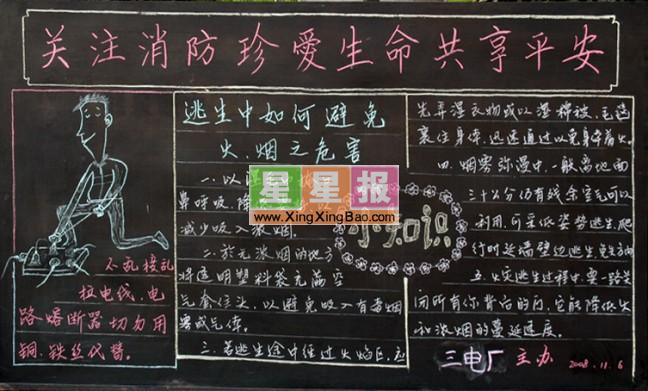 关注消防珍愛生命共享平安
不乱接乱
拉电线、电
路熔断器切勿用
铜、铁丝代替。
逃生中如何避免
火、烟之危害
一、以
鼻呼吸
减少吸入浓烟
二、於元浓烟的地方
将透明塑料袋充满空
气套住头、以避免吸入有毒烟
雾或气体。
三、若逃生途中经过火焰区、应
先弄湿衣物或以湿棉被、毛毯
裹住身体、迅速通过以免身体着火。
四、烟雾弥漫中、一般离地面
三十公分仍有残余空气可以
利用、可采低姿势逃生、爬
行时延墙壁边逃生
五、火灾逃生过程中要一路关
闭所有你背后的门、它能降低火
和浓烟的蔓延速度。
小知识
三电厂 主办 2008.11.6
星星报
www.XingXingBao.com